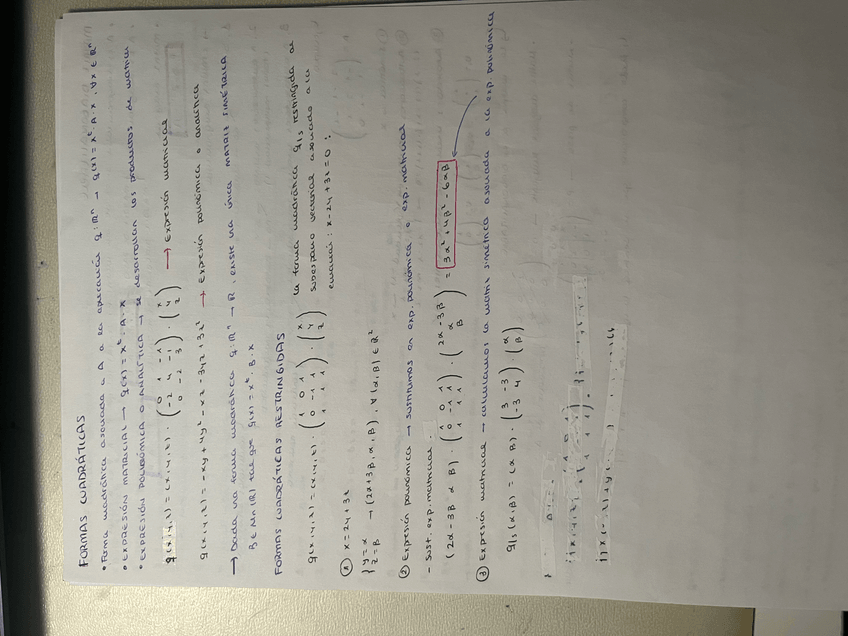 FORMAS CUADRÁTICAS
• Forma cuadrática asociada a A a la aplicación q: ℝⁿ → q(x) = xᵗ A · x , ∀x ∈ ℝⁿ
• EXPRESIÓN MATRICIAL → q(x) = xᵗ · A · x
• EXPRESIÓN POLINÓMICA O ANALÍTICA → se desarrollan los productos de matrices
q(x,y,z) = (x,y,z) · (0 1 -1 / -2 4 -1 / 0 -2 3) · (x / y / z) → Expresión matricial
q(x,y,z) = -xy + 4y² - xz - 3yz + 3z² → Expresión polinómica o analítica
→ Dada una forma cuadrática q: ℝⁿ → ℝ, existe una única MATRIZ SIMÉTRICA
B ∈ Mn(ℝ) tal que q(x) = xᵗ · B · x
FORMAS CUADRÁTICAS RESTRINGIDAS
q(x,y,z) = (x,y,z) · (1 0 1 / 0 -1 1 / 1 1 1) · (x / y / z) la forma cuadrática q|s restringida al
subespacio vectorial asociado a la
ecuación: x - 2y + 3z = 0 :
① x = 2y + 3z
{ y = α / z = β → (2α + 3β, α, β) , ∀(α, β) ∈ ℝ²
② Expresión polinómica → sustituimos en exp. polinómica o exp. matricial
- Sust. exp. matricial.
(2α - 3β α β) · (1 0 1 / 0 -1 1 / 1 1 1) · (2α - 3β / α / β) = 3α² + 4β² - 6αβ
③ Expresión matricial → calculamos la matriz simétrica asociada a la exp polinómica
q|s (α, β) = (α β) · (3 -3 / -3 4) · (α / β)